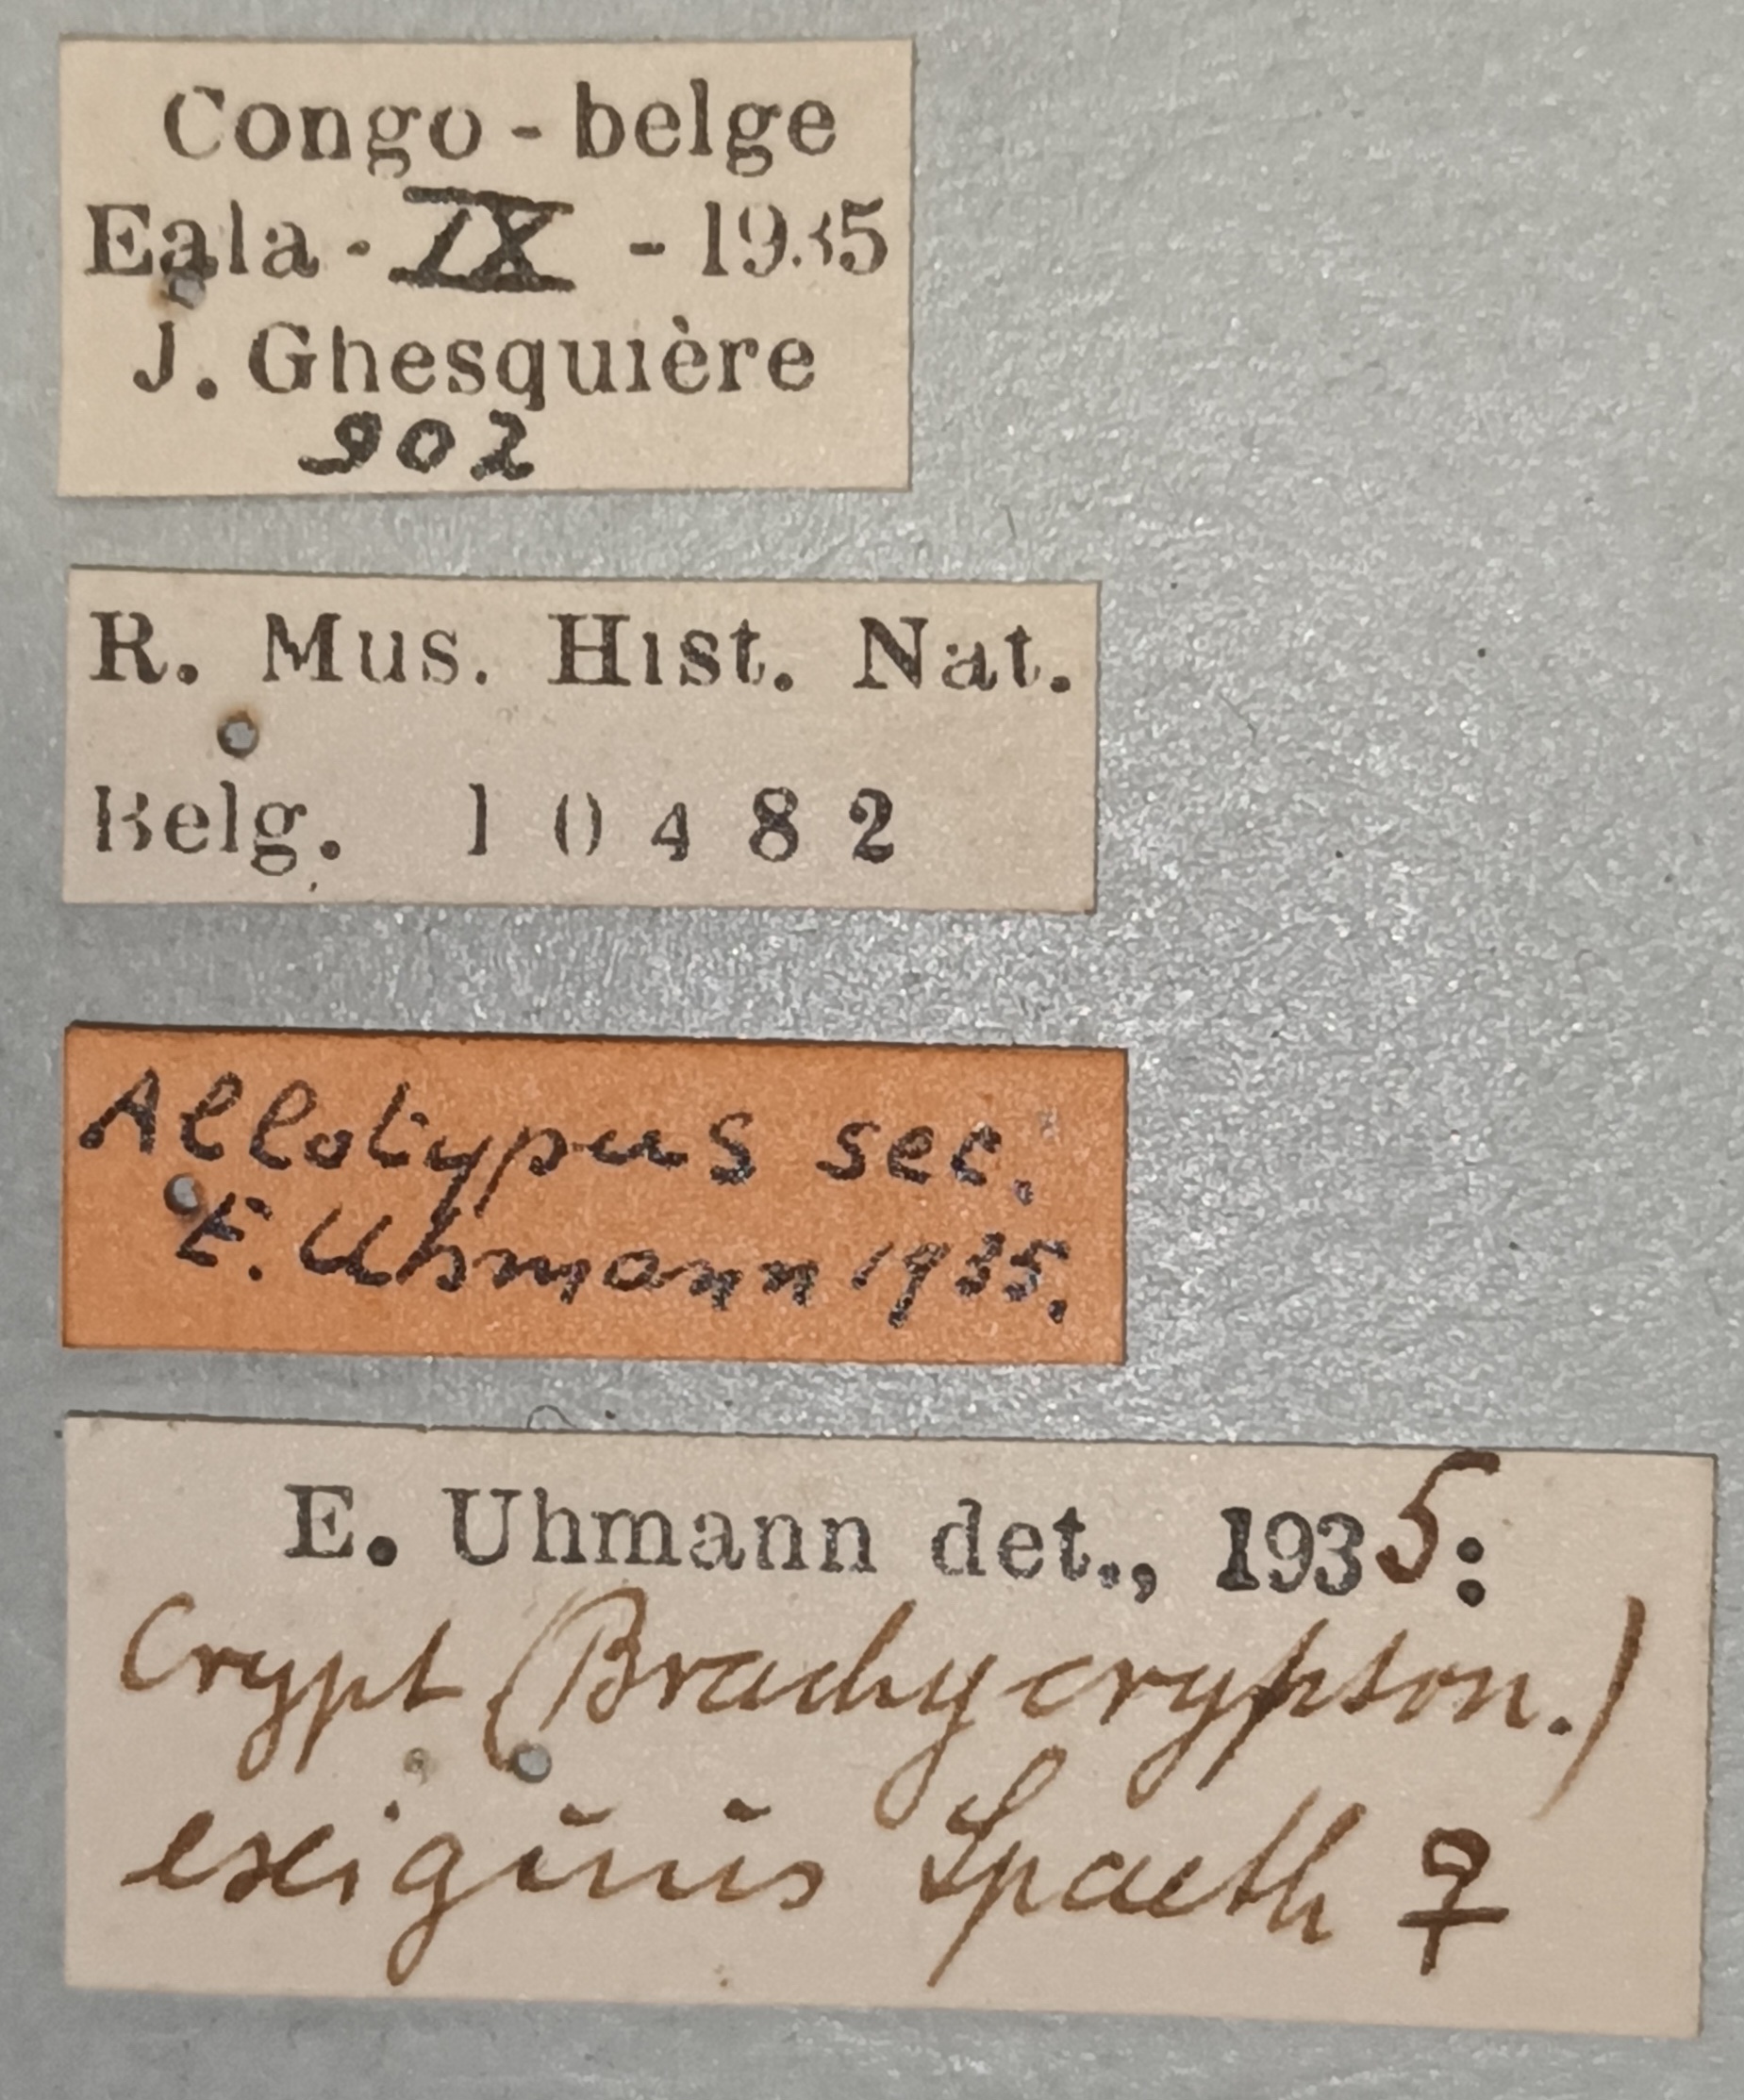 Congo - belge
Eala - IX - 1935
J. Ghesquière
902
R. Mus. Hist. Nat.
Belg. 10482
Allotypus sec.
E. Uhmann 1935.
E. Uhmann det., 1935:
Crypt (Brachycrypton.)
exiguus Spaeth ♀